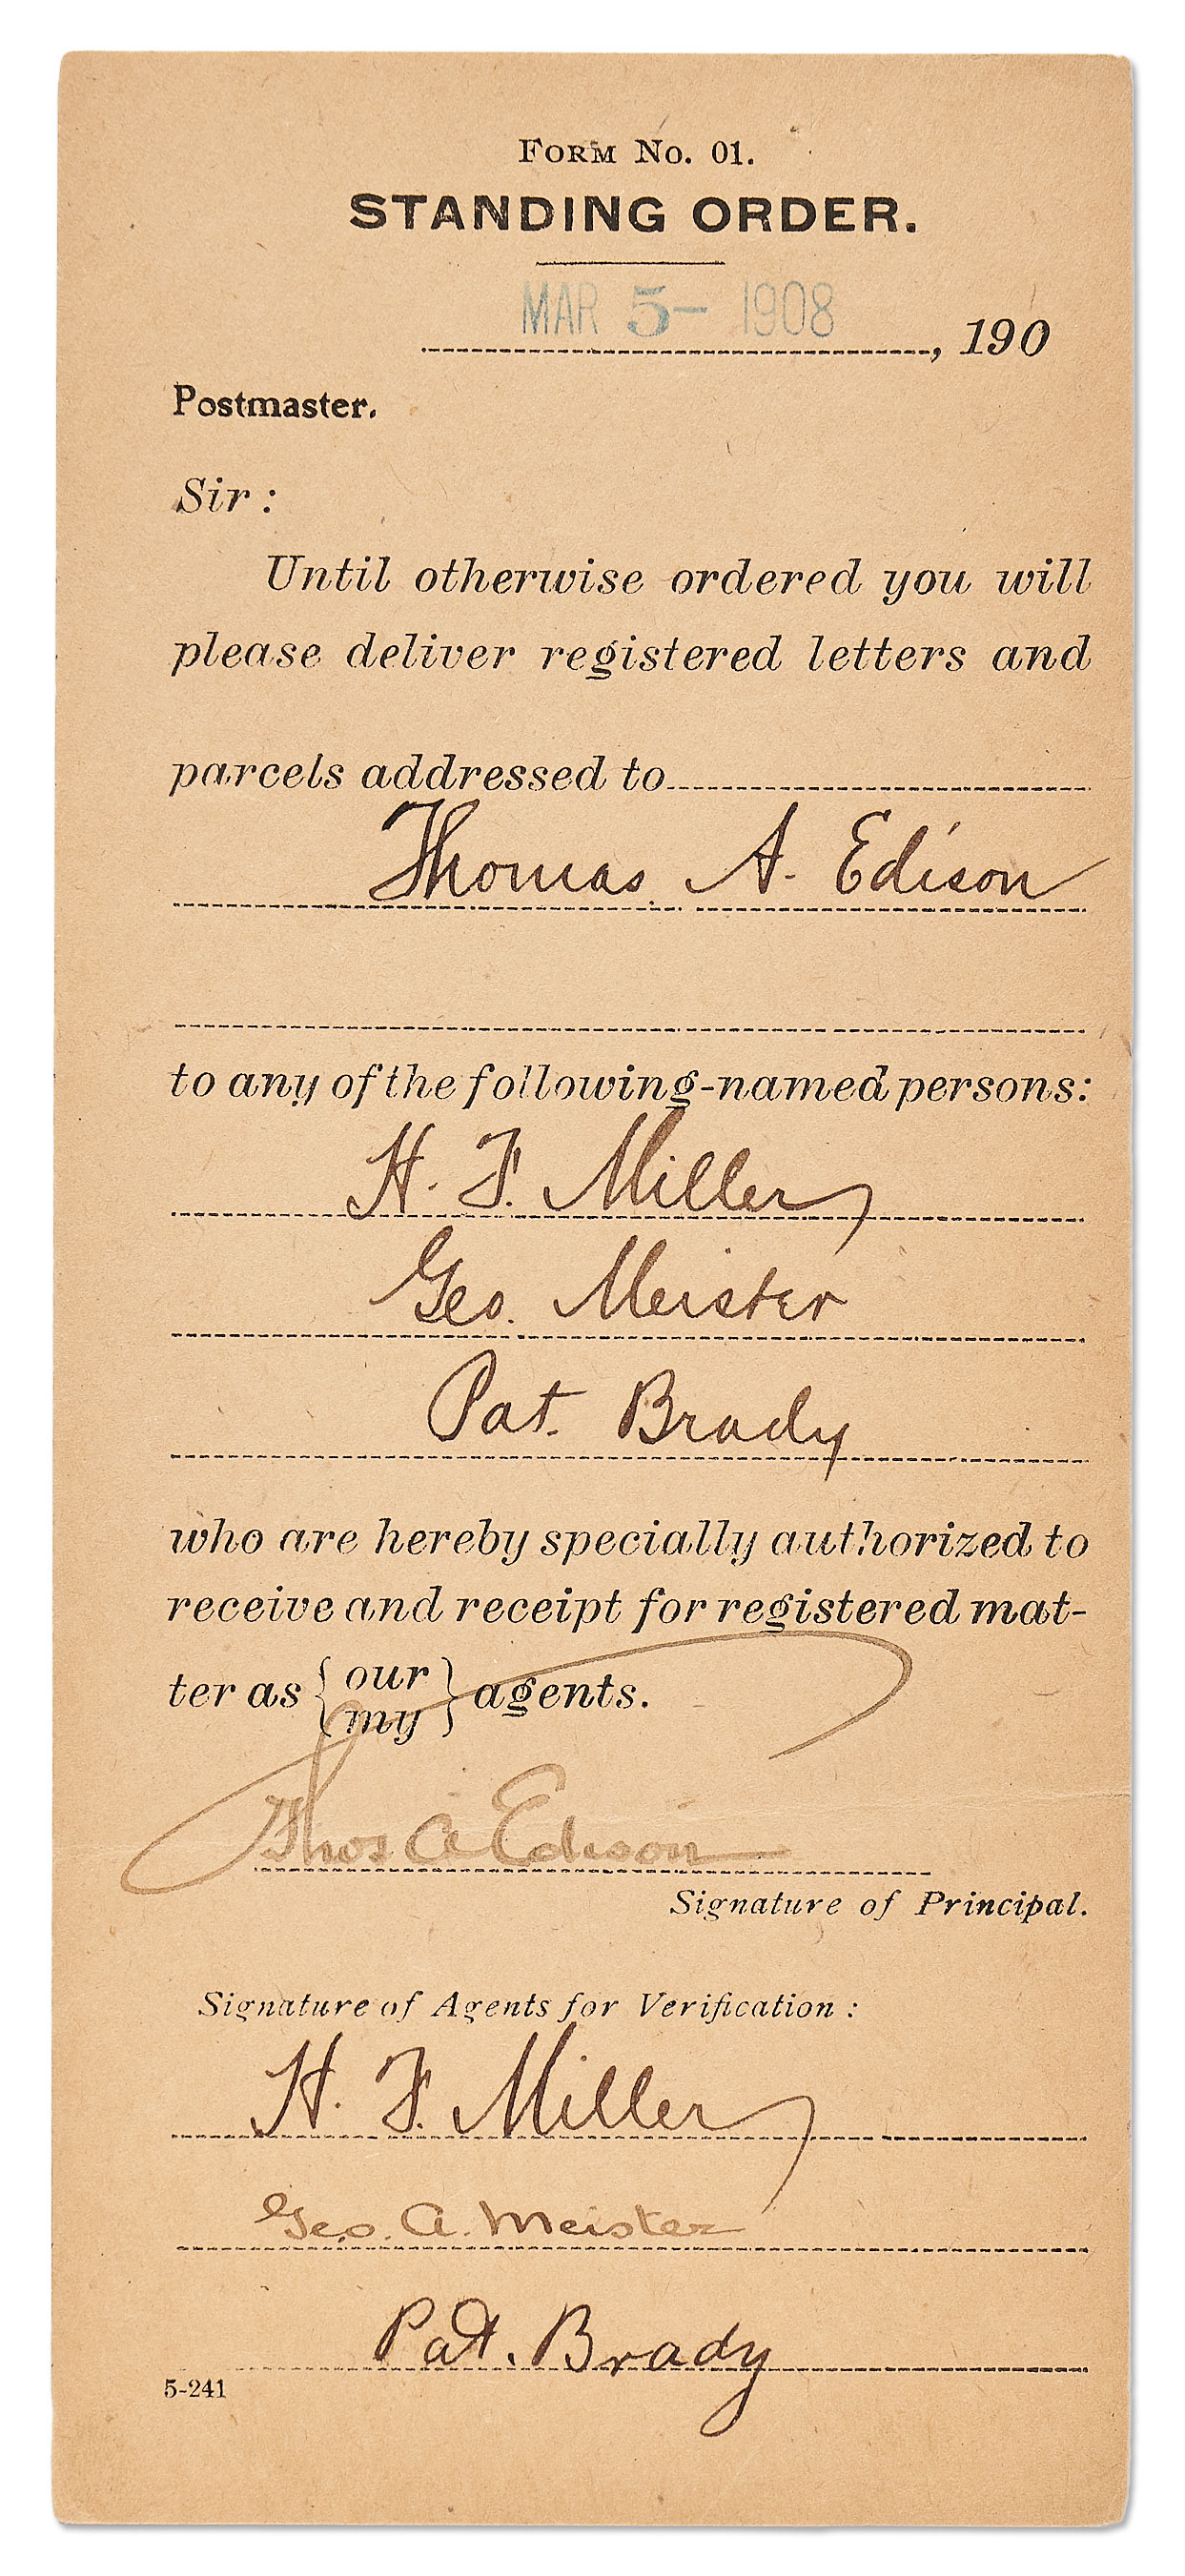 FORM No. 01.
STANDING ORDER.
MAR 5- 1908
, 190
Postmaster.
Sir:
Until otherwise ordered you will
please deliver registered letters and
parcels addressed to
Thomas A. Edison
to any of the following-named persons:
H. F. Miller
Geo. Meister
Pat. Brady
who are hereby specially authorized to
receive and receipt for registered mat-
ter as { our my } agents.
Thos A Edison
Signature of Principal.
Signature of Agents for Verification:
H. F. Miller
Geo. A. Meister
Pat. Brady
5-241